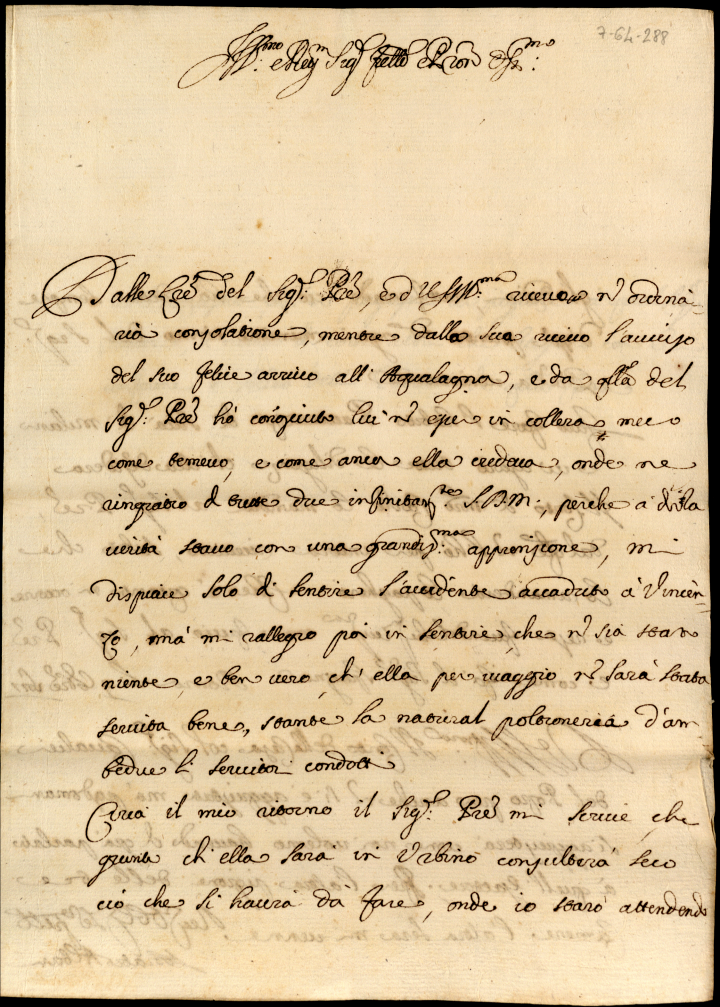 7-64-288
Ill.mo e Rev.m Sig.r fratello e Pron
Dalle Lre del Sig.r Pre, e d VS Ill.ma ricevo nō ordina-
ria consolatione, mentre dalla sua ricevo l'aviso
del suo felice arrivo all' Acqualagna, e da qlla del
Sig.r Pre hò conosciuto lui nō esser in collera meco
come temevo, e come anco ella credeva, onde ne
ringratio di tutte due infinitam.te S.D.M., perche à dirla
verità stavo con una grandis.ma apprensione, mi
dispiace solo di sentire l'accidente accaduto à Vincen-
zo, mà mi rallegro poi in sentire, che nō sia stato
niente, e ben vero, ch' ella per viaggio nō sarà stata
servita bene, stante la natural poltroneria d'am-
bedue li servitori condotti
Circa il mio ritorno il Sig.r Pre mi scrive, che
giunta ch' ella sarà in Urbino consulterà seco
ciò che si haverà dà fare, onde io starò attendendo